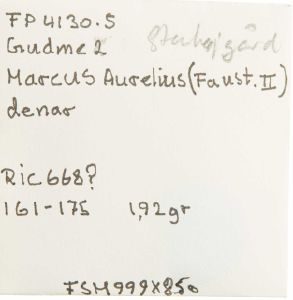 FP4130.5
Gudme 2 Stenhøjgård
Marcus Aurelius (Faust. II)
denar
Ric 668?
161-175 1,92 gr
FSM 9999X850